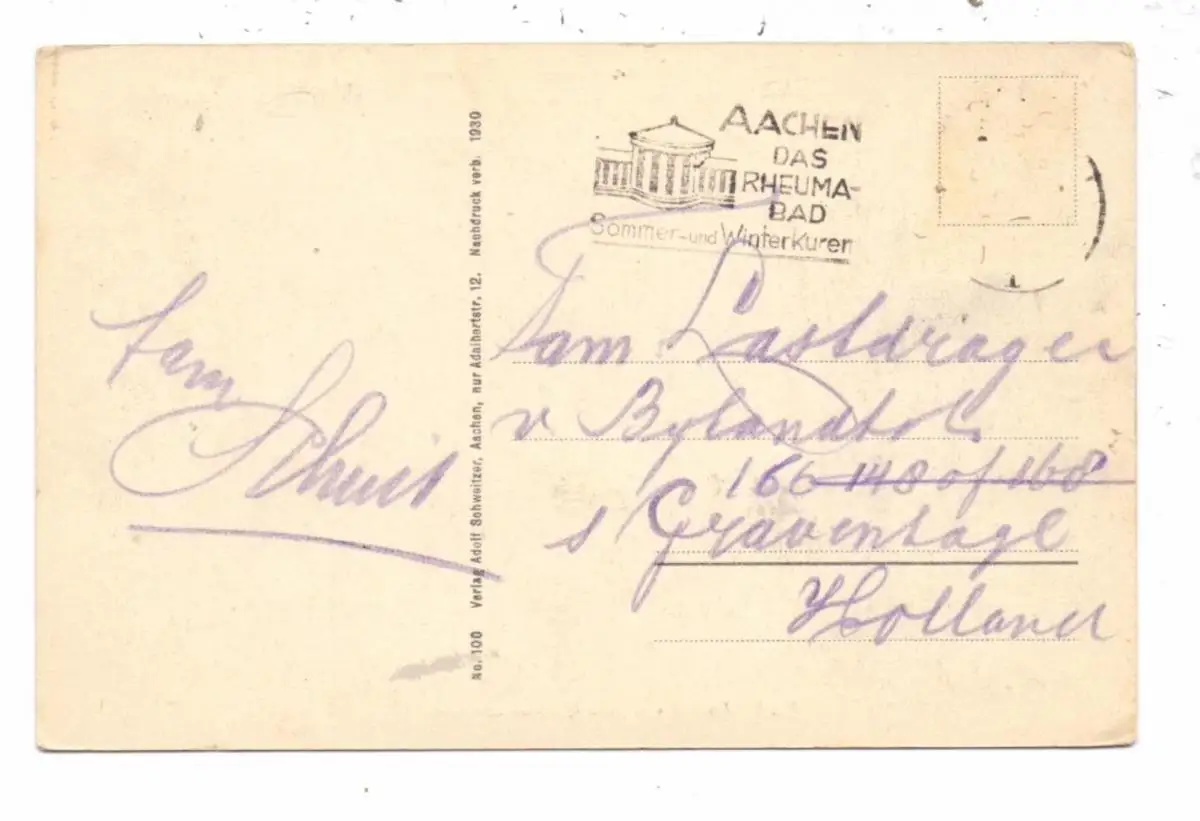 AACHEN
DAS
RHEUMA-
BAD
Sommer- und Winterkuren
Fam
Schuit
No. 100 Verlag Adolf Schweitzer, Aachen, nur Adalbertstr. 12. Nachdruck verb. 1930
Fam Lastdrager
v Bylandtstr
166 148 of 168
s Gravenhage
Holland